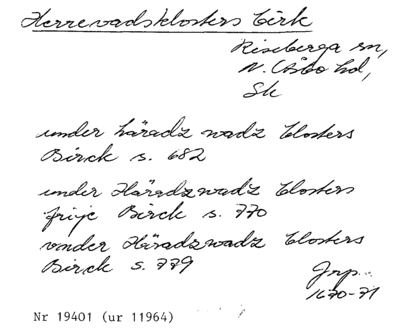 Herrevadsklosters birk
Riseberga sn,
N. Åsbo hd,
Sk
under häradz wadz Closters
Birck s. 682
under Häradzwadz Closters
frije Birck s. 770
vnder Häradzwadz Closters
Birck s. 779
Jrp.
1670-71
Nr 19401 (ur 11964)